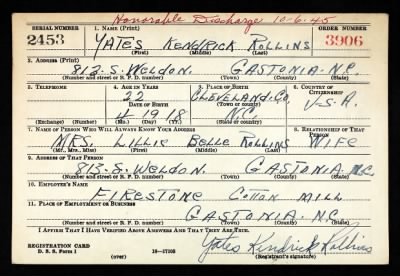 Honorable Discharge 10-6-45
SERIAL NUMBER 1. NAME (Print) ORDER NUMBER
2453 YATES KENDRICK ROLLINS 3906
(First) (Middle) (Last)
3. ADDRESS (Print)
813-S. WELDON. GASTONIA. N.C.
(Number and street or R. F. D. number) (Town) (County) (State)
3. TELEPHONE 4. AGE IN YEARS 5. PLACE OF BIRTH 6. COUNTRY OF CITIZENSHIP
22 CLEVELAND. CO.
DATE OF BIRTH (Town or county) U-S.A.
4 19 18 N.C.
(Exchange) (No.) (Mo.) (Day) (Yr.) (State or country)
7. NAME OF PERSON WHO WILL ALWAYS KNOW YOUR ADDRESS 8. RELATIONSHIP OF THAT PERSON
MRS. LILLIE BELLE ROLLINS WIFE
(Mr., Mrs., Miss) (First) (Middle) (Last)
9. ADDRESS OF THAT PERSON
813-S. WELDON. GASTONIA. N.C.
(Number and street or R. F. D. number) (Town) (County) (State)
10. EMPLOYER'S NAME
FIRESTONE COTTON MILL
11. PLACE OF EMPLOYMENT OR BUSINESS
GASTONIA. N.C.
(Number and street or R. F. D. number) (Town) (County) (State)
I AFFIRM THAT I HAVE VERIFIED ABOVE ANSWERS AND THAT THEY ARE TRUE.
REGISTRATION CARD Yates Kendrick Rollins
D. S. S. Form 1 16-17105 (Registrant's signature)
(over)